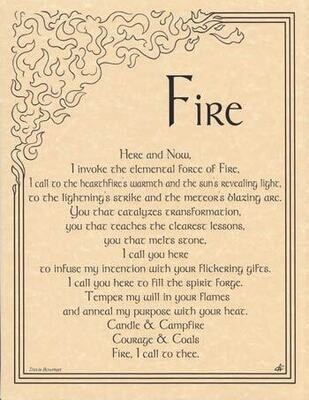 Fire
Here and Now,
I invoke the elemental force of Fire,
I call to the hearthfire's warmth and the sun's revealing light,
to the lightning's strike and the meteor's blazing arc.
You that catalyzes transformation,
you that teaches the clearest lessons,
you that melts stone,
I call you here
to infuse my intention with your flickering gifts.
I call you here to fill the spirit forge.
Temper my will in your flames
and anneal my purpose with your heat.
Candle & Campfire
Courage & Coals
Fire, I call to thee.